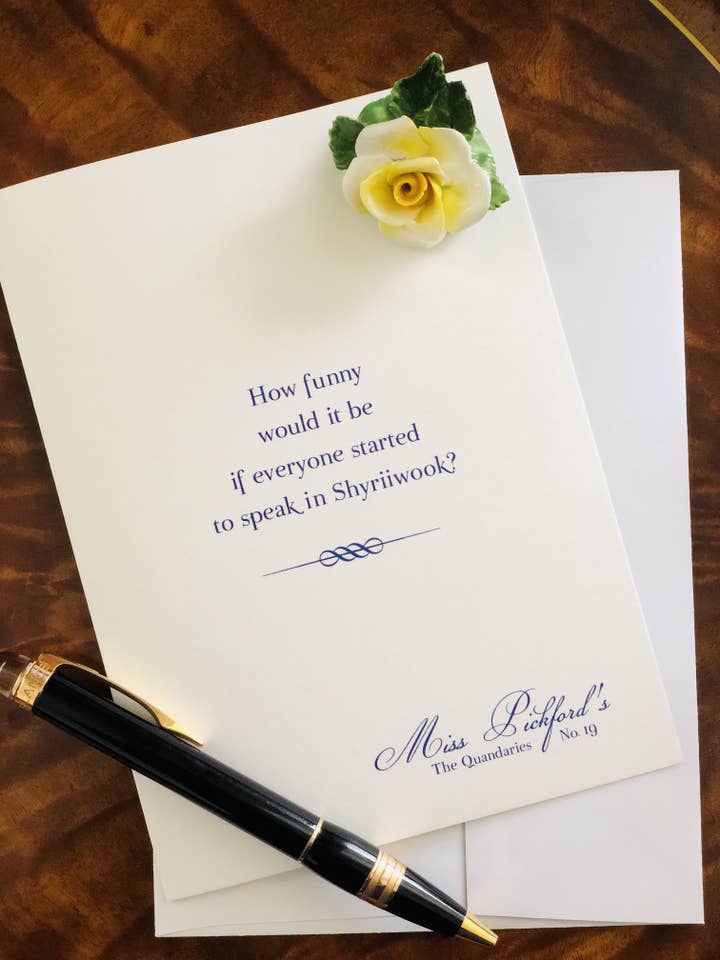 How funny
would it be
if everyone started
to speak in Shyriiwook?
Miss Pickford's
The Quandaries No. 19